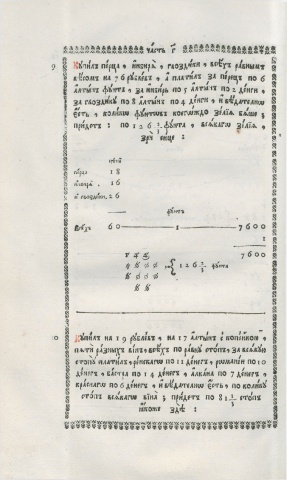 часть г҃
Купилъ перца, инбиря, гвоздики, всѣхъ равнымъ
вѣсомъ на 76 рублевъ, а платилъ за перецъ по 6
алтынъ фунтъ, за инбирь по 5 алтынъ по 2 денги,
за гвоздику по 8 алтынъ по 4 денги, и вѣдателно
есть, колико фунтовъ коегождо зелiя бяше;
прiидетъ: по 126 2/3 фунта, всякагѡ зелiя,
зри сице:
цѣна
перцъ 18
инбирь 16
гвоздик. 26
фунтъ
всѣхъ 60 1 7600
1
7600
126 2/3 фунта
Купилъ на 19 рублевъ, на 17 алтынъ с копѣйкою
пяти разныхъ винъ, всѣхъ по равну стопъ, за всякую
стопу платилъ, ренскагѡ по 11 денегъ, романеи по 10
денегъ, бастра по 14 денегъ, алкана по 7 денегъ,
красного по 6 денегъ, и вѣдателно есть, по колику
стопъ всякагѡ вина; прiидетъ по 81 1/3 стопъ
якоже здѣ: